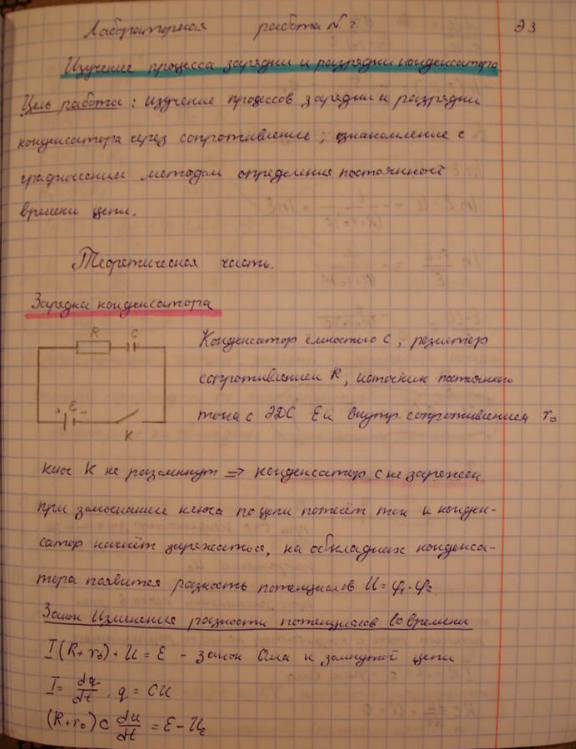 Лабораторная работа № 2 ЭЗ
Изучение процесса зарядки и разрядки конденсатора.
Цель работы: изучение процессов зарядки и разрядки
конденсатора через сопротивление; ознакомление с
графическим методом определения постоянной
времени цепи.
Теоретическая часть.
Зарядка конденсатора
R C
Конденсатор ёмкостью C, резистор
сопротивлением R, источник постоянного
+ ℰ −
тока с ЭДС ℰ и внутр. сопротивлением r₀
K
ключ K не разомкнут => конденсатор с не заряжен
при замыкании ключа по цепи потечёт ток и конден-
сатор начнёт заряжаться, на обкладках конденса-
тора появится разность потенциалов U = φ₁-φ₂
Закон Изменения разности потенциалов во времени
I(R+r₀)+U = ℰ - закон Ома к замкнутой цепи
I = dq/dt, q = CU
(R+r₀)C du/dt = ℰ - U